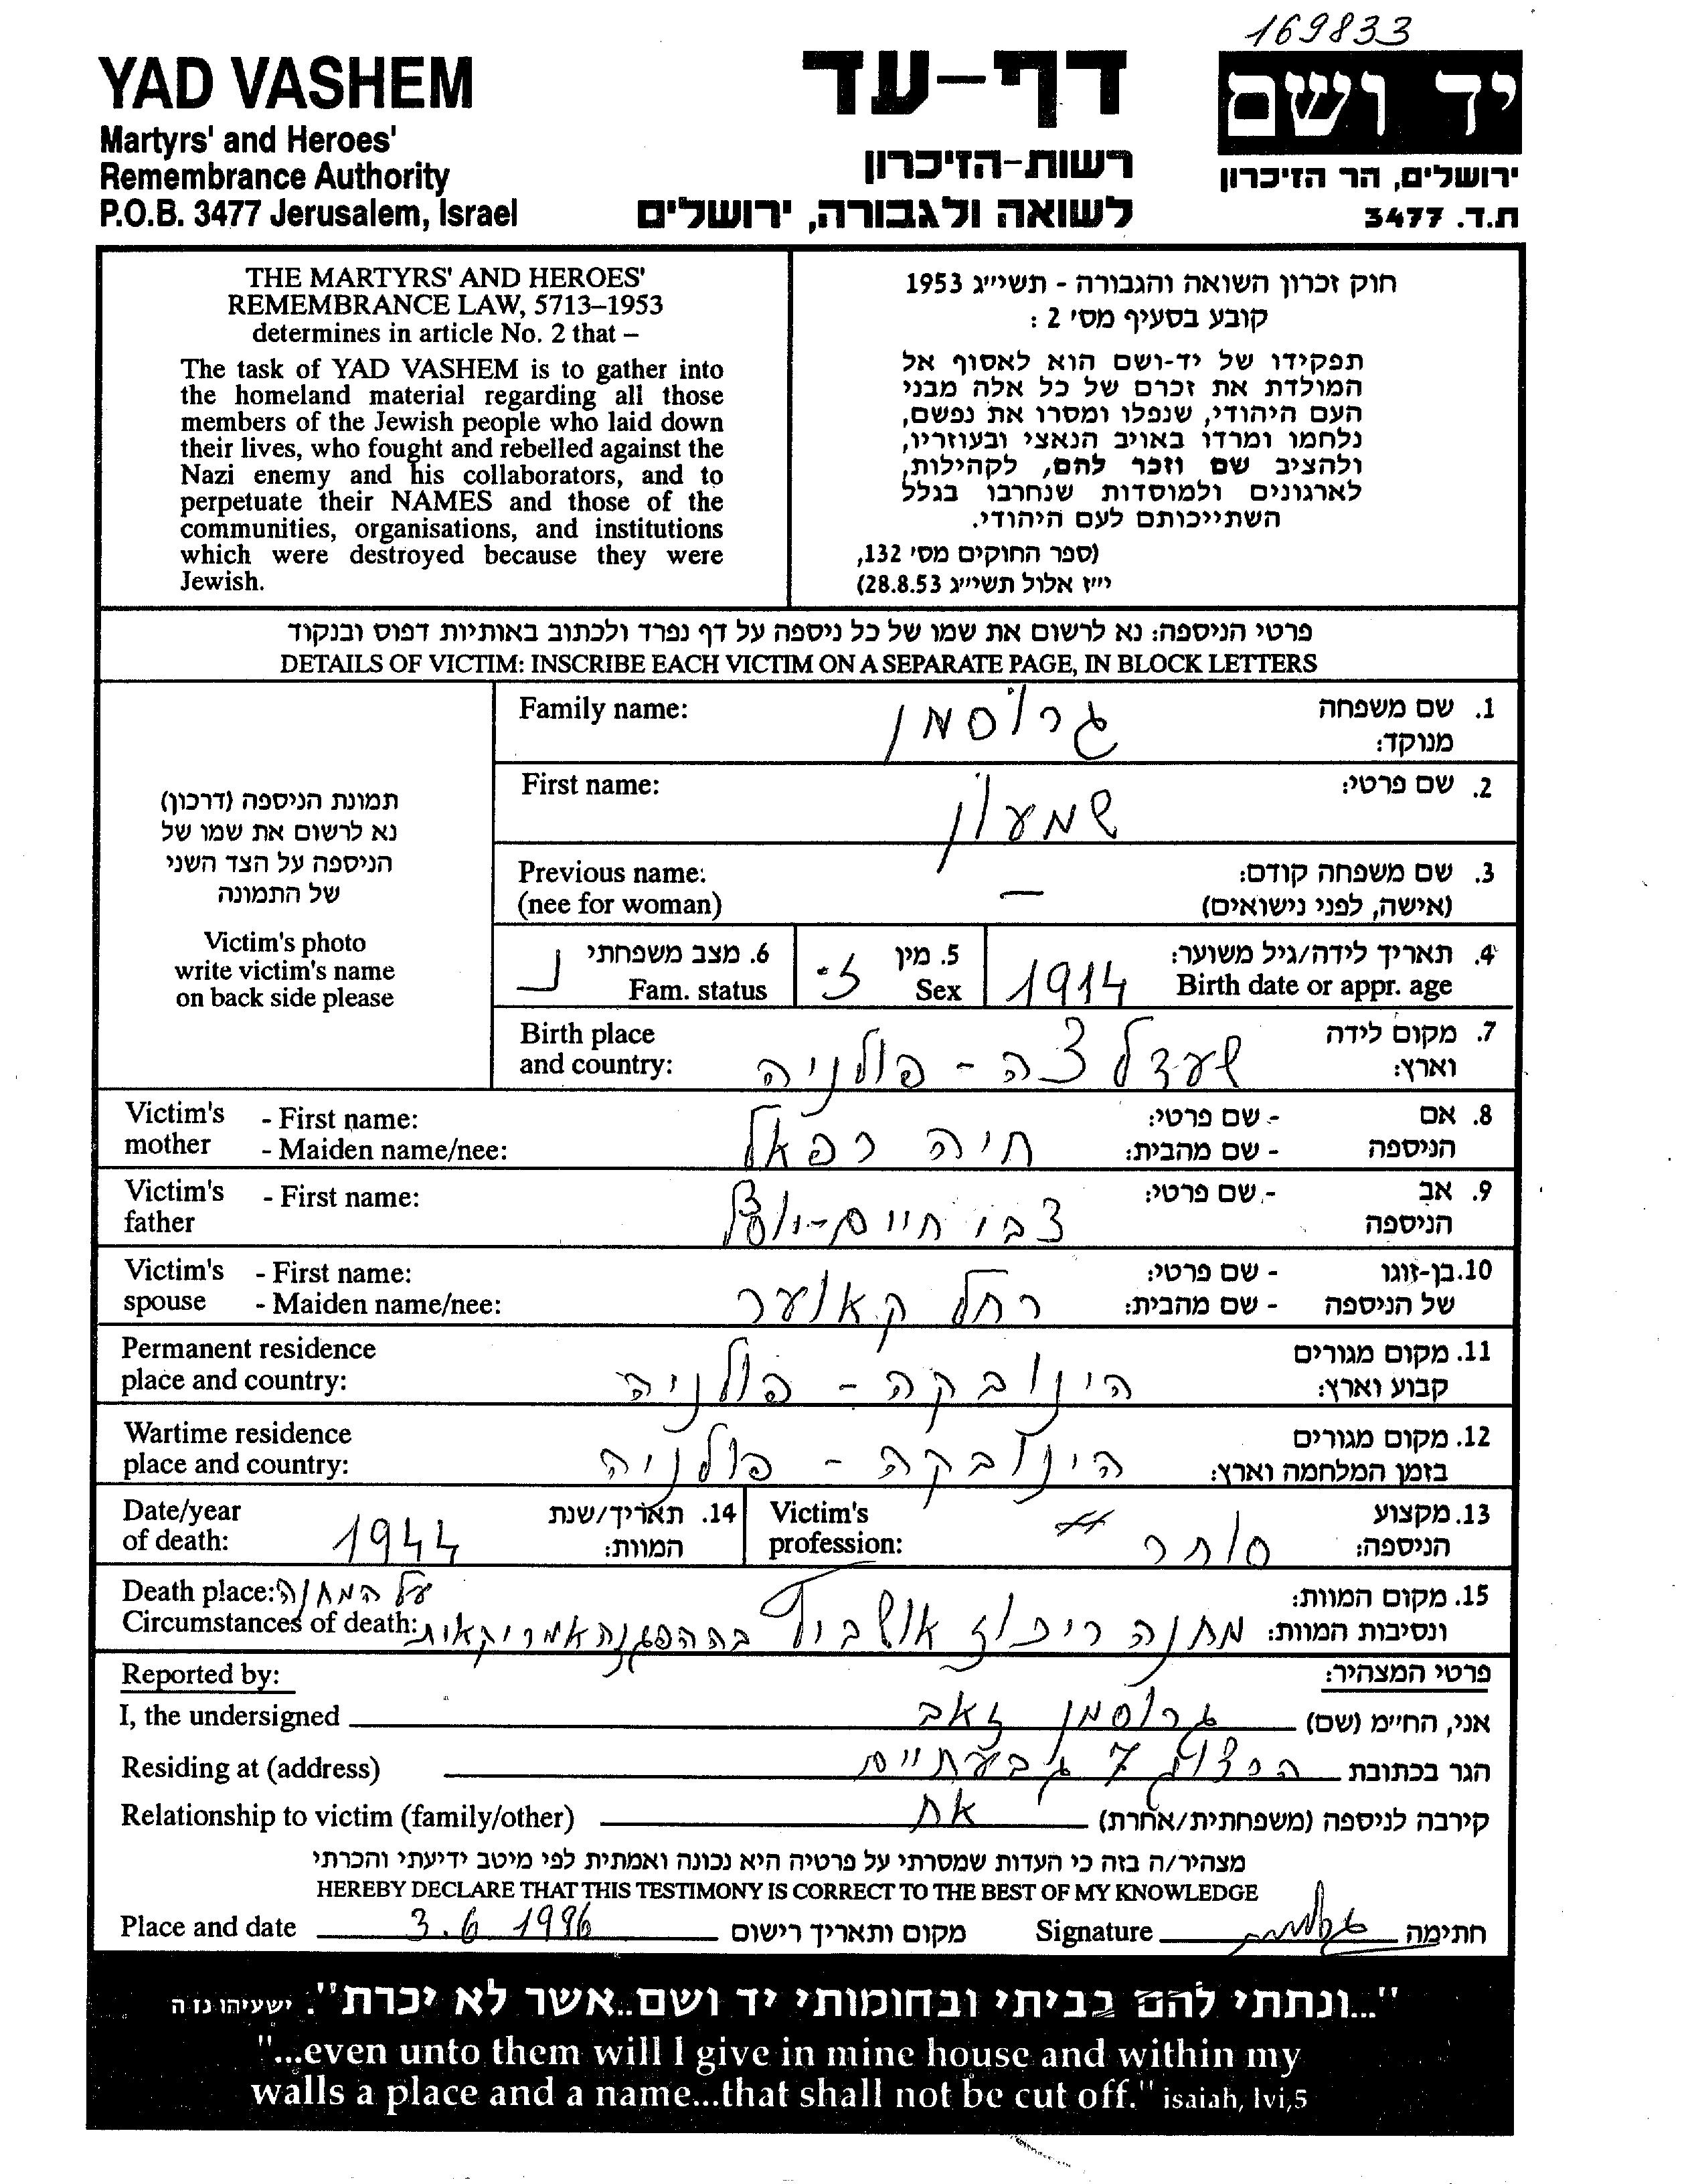 169833
YAD VASHEM
Martyrs' and Heroes'
Remembrance Authority
P.O.B. 3477 Jerusalem, Israel
דף-עד
רשות-הזיכרון
לשואה ולגבורה, ירושלים
יד ושם
ירושלים, הר הזיכרון
ת.ד. 3477
THE MARTYRS' AND HEROES'
REMEMBRANCE LAW, 5713–1953
determines in article No. 2 that –
The task of YAD VASHEM is to gather into
the homeland material regarding all those
members of the Jewish people who laid down
their lives, who fought and rebelled against the
Nazi enemy and his collaborators, and to
perpetuate their NAMES and those of the
communities, organisations, and institutions
which were destroyed because they were
Jewish.
חוק זכרון השואה והגבורה - תשי״ג 1953
קובע בסעיף מס׳ 2 :
תפקידו של יד-ושם הוא לאסוף אל
המולדת את זכרם של כל אלה מבני
העם היהודי, שנפלו ומסרו את נפשם,
נלחמו ומרדו באויב הנאצי ובעוזריו,
ולהציב שם וזכר להם, לקהילות,
לארגונים ולמוסדות שנחרבו בגלל
השתייכותם לעם היהודי.
(ספר החוקים מס׳ 132,
י״ז אלול תשי״ג 28.8.53)
פרטי הניספה: נא לרשום את שמו של כל ניספה על דף נפרד ולכתוב באותיות דפוס ובנקוד
DETAILS OF VICTIM: INSCRIBE EACH VICTIM ON A SEPARATE PAGE, IN BLOCK LETTERS
תמונת הניספה (דרכון)
נא לרשום את שמו של
הניספה על הצד השני
של התמונה
Victim's photo
write victim's name
on back side please
1. שם משפחה מנוקד: גרוסמן Family name:
2. שם פרטי: שמעון First name:
3. שם משפחה קודם: — Previous name:
(אישה, לפני נישואים) (nee for woman)
4. תאריך לידה/גיל משוער: Birth date or appr. age 1914
5. מין Sex ז.
6. מצב משפחתי Fam. status נ
7. מקום לידה וארץ: - פולניה Birth place and country:
8. אם הניספה - שם פרטי: - שם מהבית: חיה רפאל Victim's mother - First name: - Maiden name/nee:
9. אב הניספה - שם פרטי: צבי חיים- Victim's father - First name:
10. בן-זוגו של הניספה - שם פרטי: - שם מהבית: רחל קאוער Victim's spouse - First name: - Maiden name/nee:
11. מקום מגורים קבוע וארץ: הינובקה - פולניה Permanent residence place and country:
12. מקום מגורים בזמן המלחמה וארץ: הינובקה - פולניה Wartime residence place and country:
13. מקצוע הניספה: סוחר Victim's profession:
14. תאריך/שנת המוות: 1944 Date/year of death:
15. מקום המוות: ונסיבות המוות: מחנה ריכוז בההפגזה אמריקאית על המחנה Death place: Circumstances of death:
פרטי המצהיר: Reported by:
אני, הח״מ (שם) גרוסמן זאב I, the undersigned
הגר בכתובת 7 גבעתיים Residing at (address)
קירבה לניספה (משפחתית/אחרת) אח Relationship to victim (family/other)
מצהיר/ה בזה כי העדות שמסרתי על פרטיה היא נכונה ואמתית לפי מיטב ידיעתי והכרתי
HEREBY DECLARE THAT THIS TESTIMONY IS CORRECT TO THE BEST OF MY KNOWLEDGE
Place and date 3.6 1996 מקום ותאריך רישום Signature חתימה
"...ונתתי להם בביתי ובחומותי יד ושם..אשר לא יכרת". ישעיהו נז ה
"...even unto them will I give in mine house and within my
walls a place and a name...that shall not be cut off." isaiah, lvi,5